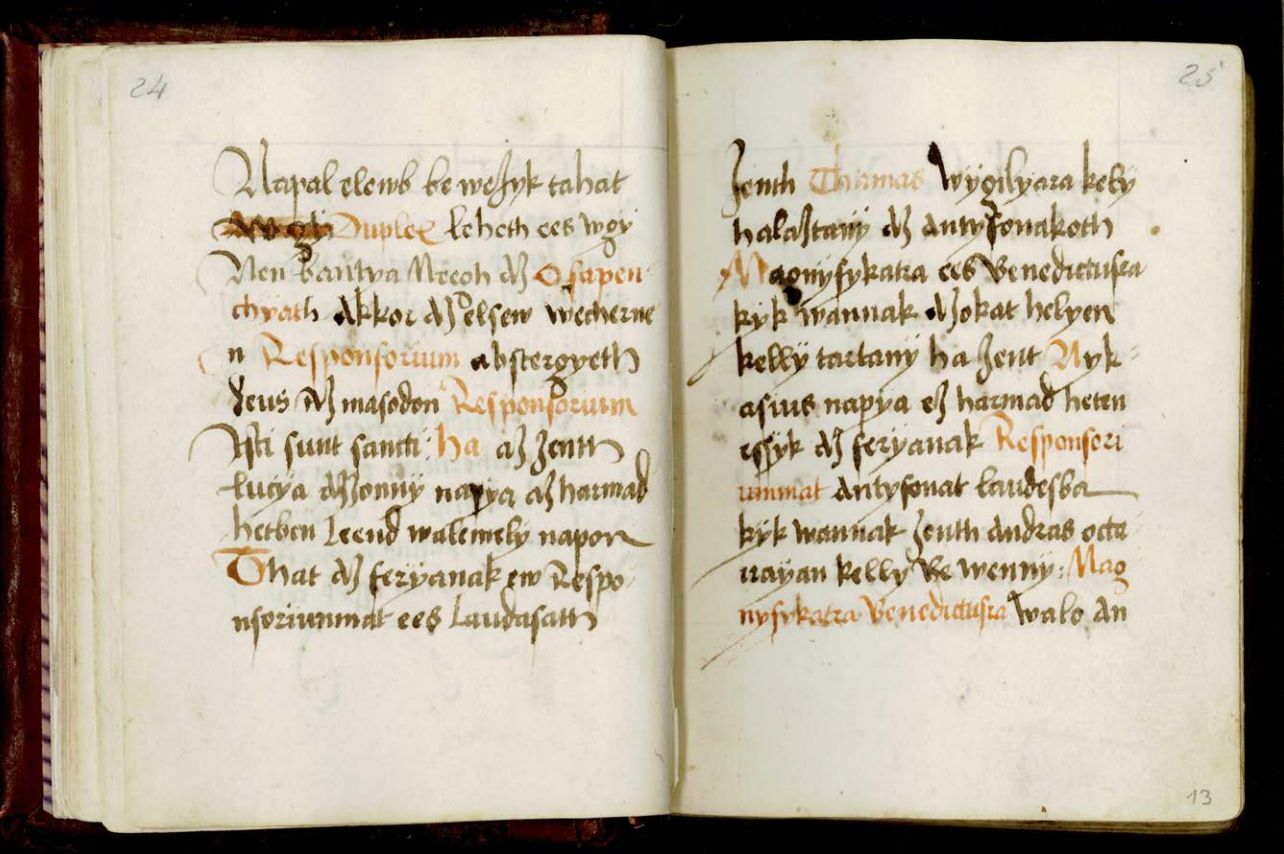 24
Napal elewb be weʒyk tahat
Duplex leheth ees wgy
Nen bantya Mreoh aʒ O sapen
cyath Akkor aʒ elsew wecherne
n Responsorium abstergyeth
deus Aʒ masodon Responsorium
Isti sunt sancti: ha aʒ ʒentt
lucya aʒʒonny napya aʒ harmad
hetben leend walemely napon
That aʒ feryanak ew Respo
nsoriummat ees laudasatt
25
ʒenth Thamas wygilyara kely
halaʒtany aʒ antyfonakoth
Magnyfykatra ees Benedictusra
kyk wannak aʒokat helyen
kelly tartany ha ʒent Nyk
asius napya eʒ harmad heten
essyk aʒ feryanak Responsori
ummat Antyfonat laudesba
kyk wannak ʒenth Andras octa
uayan kelly be wenny: Mag
nyfykatra Benedictusra walo an
13